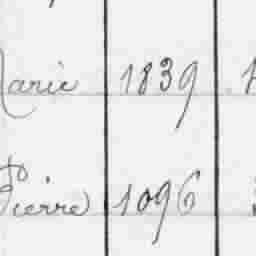 Marie 1839
Pierre 1096